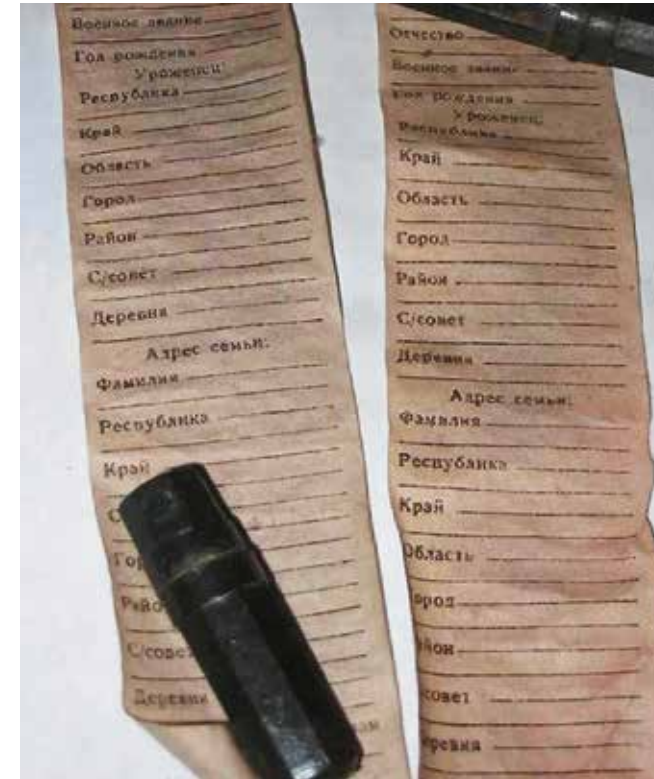 Военное звание
Год рождения
Уроженец:
Республика
Край
Область
Город
Район
С/совет
Деревня
Адрес семьи:
Фамилия
Республика
Край
Деревня
Отчество
Военное звание
Год рождения
Уроженец:
Республика
Край
Область
Город
Район
С/совет
Деревня
Адрес семьи:
Фамилия
Республика
Край
Область